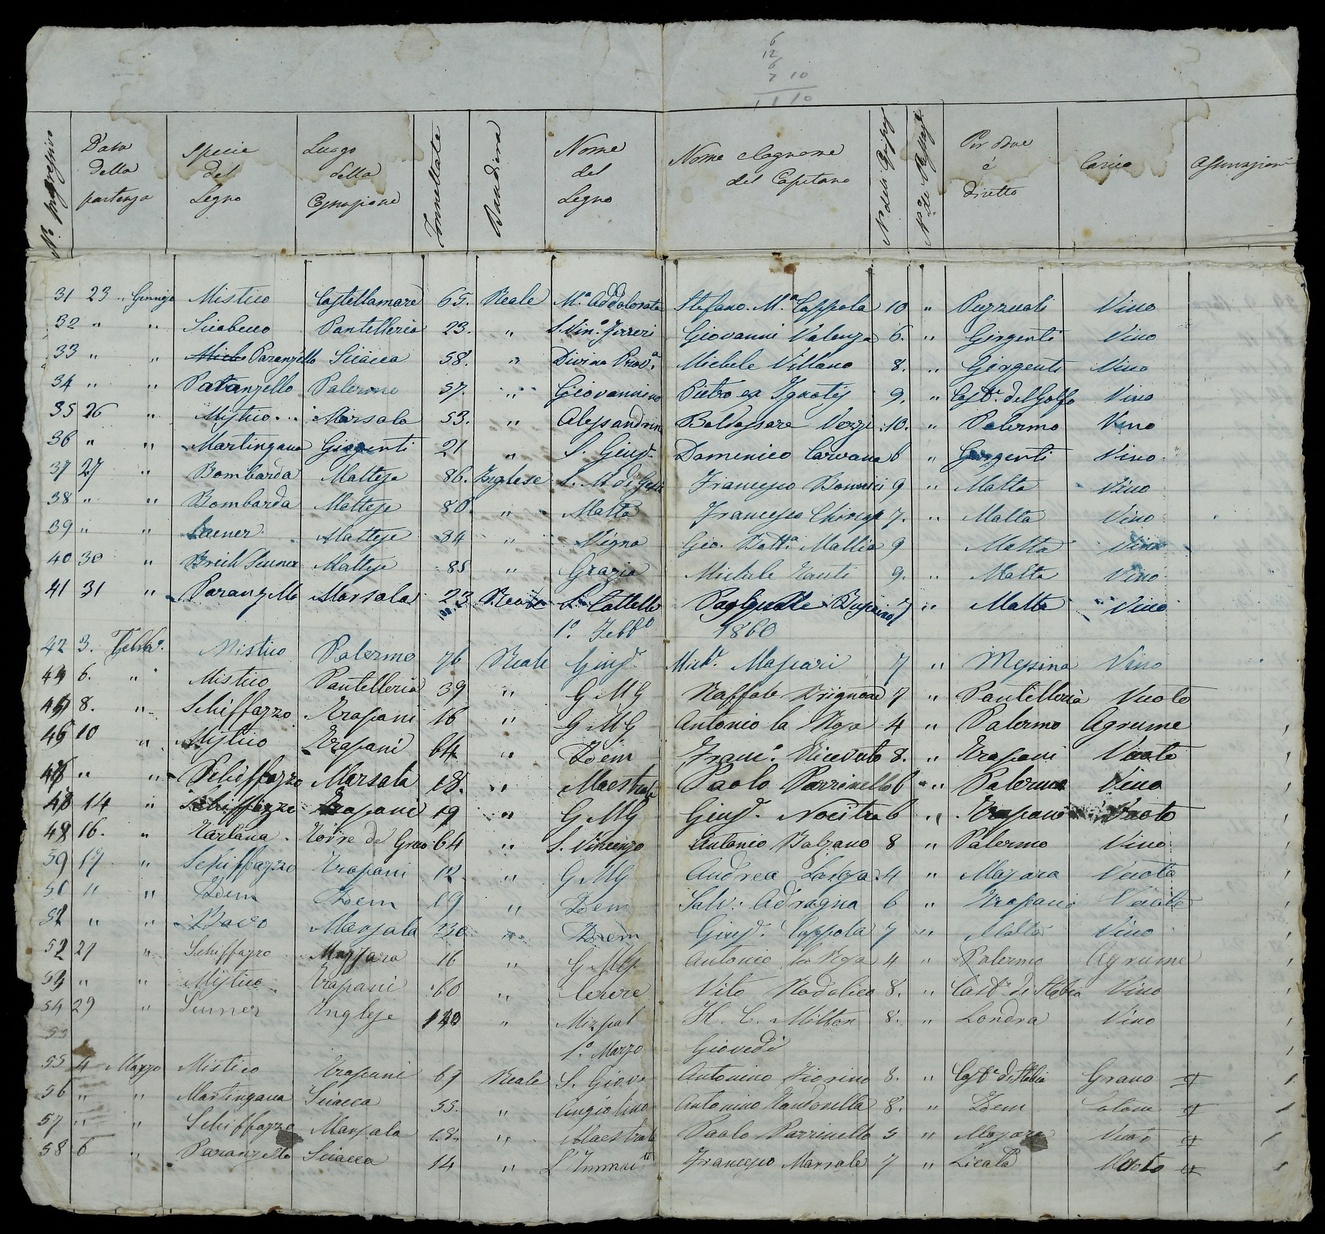 6
12
6
7 10
11 10
N. Progressivo Data della partenza Specie del Legno Luogo della Tonnellate Bandiera Nome del Legno Nome e Cognome del Capitano N. N. Per dove è diretto Carico
31 23 " Mistico Castellamare 65. Reale M.a Addolorata Stefano M.a Coppola 10 " Puzzuoli Vino
32 " " Pantelleria 23. " S. Vin. Ferreri Giovanni Valenza 6. " Girgenti Vino
33 " " Paranzello Sciacca 58. " Divina Prov.a Michele Villano 8. " Girgenti Vino
34 " " Paranzello Palermo 37. " Giovannina Pietro 9. " Cast. del Golfo Vino
35 26 " Mistico Marsala 53. " Alessandrina Baldassare 10. " Palermo Vino
36 " " Martingana Girgenti 21 " S. Giusp. Domenico Carvana 6 " Girgenti Vino
37 27 " Bombarda Maltese 86. Inglese Francesco 9 " Malta Vino
38 " " Bombarda Maltese 80 " Malta Francesco 7. " Malta Vino
39 " " Scuner Maltese 84 " Gio. Batt.a Mallia 9 " Malta Vino
40 30 " Brick Scuner Maltese 85 " Grazia Michele 9. " Malta Vino
41 31 " Paranzello Marsala 23 Reale Pasquale 7 " Malta Vino
1.o Febb.o 1860
42 3. Febb.o Mistico Palermo 76 Reale Giusp. Mich. Massari 7 " Messina Vino
44 6. " Mistico Pantelleria 39 " G M G Raffaele 7 " Pantelleria Vuoto
8. " Schiffazzo Trapani 16 " G M G Antonio la 4 " Palermo Agrume
46 10 " Mistico Trapani 64 " Idem Franc. 8. " Trapani Vuoto
" " Schiffazzo Marsala 18. " Maestrale Paolo Parrinello 6 " Palermo Vino
48 14 " Schiffazzo Trapani 19 " G M G Giusp. 6 " Trapani Vuoto
16. " Tartana Torre del Greco 64 " S. Vincenzo Antonio Balzano 8 " Palermo Vino
17 " Schiffazzo Trapani 12 " G M G Andrea 4 " Mazara Vuoto
" " Idem Idem 19 " Idem Salv. Adragna 6 " Trapani Vuoto
" " Marsala " Idem Giusp. Coppola 7 " Malta Vino
52 21 " Schiffazzo Mazzara 16 " G M G Antonio 4 " Palermo Agrume
53 " " Mistico Trapani 60 " Cerere Vito Rodolico 8. " Cast. di Stabia Vino
54 29 " Scuner Inglese 120 " Mizpah H. C. Milton 8. " Londra Vino
55 1.o Marzo Giovedì
55 4 Marzo Mistico Trapani 61 Reale S. Giov. Antonino Fiorino 8. " Cast. di Stabia Grano
56 " " Martingana Sciacca 53. " Angiolina Antonino 8. " Idem
57 " " Schiffazzo Marsala 18. " Maestrale Paolo Parrinello 5 " Mazara Vino
58 6 " Paranzello Sciacca 14 " L'Immac. Francesco Marsala 7 " Licata Vuoto